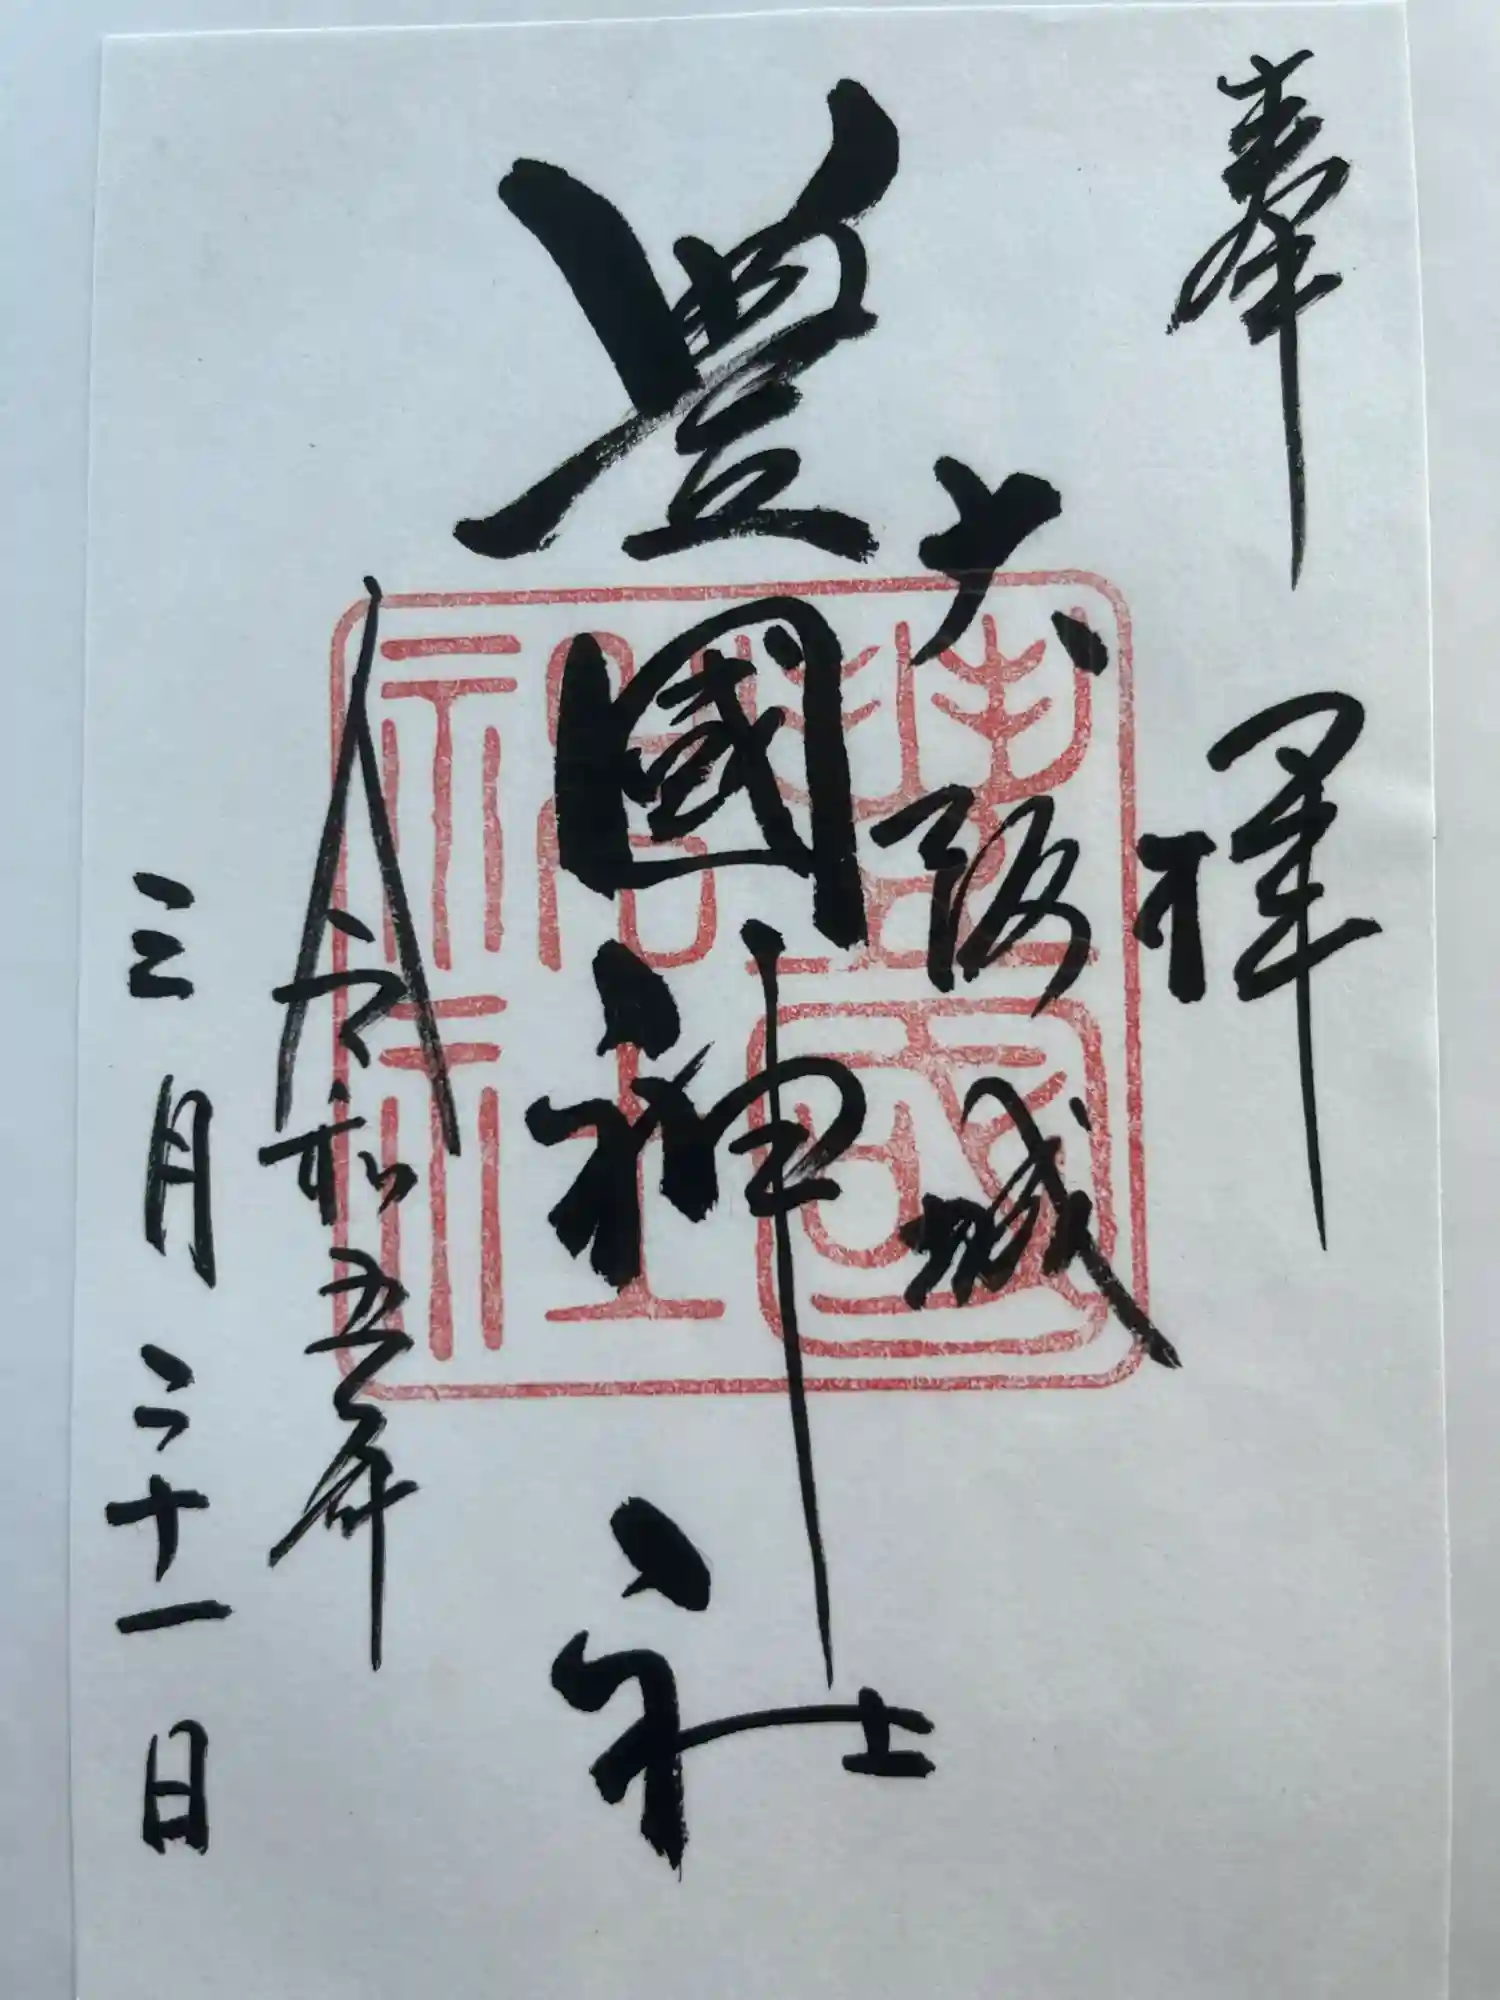 奉拝
大阪城
豊國神社
令和五年
三月二十一日
豊國
神社